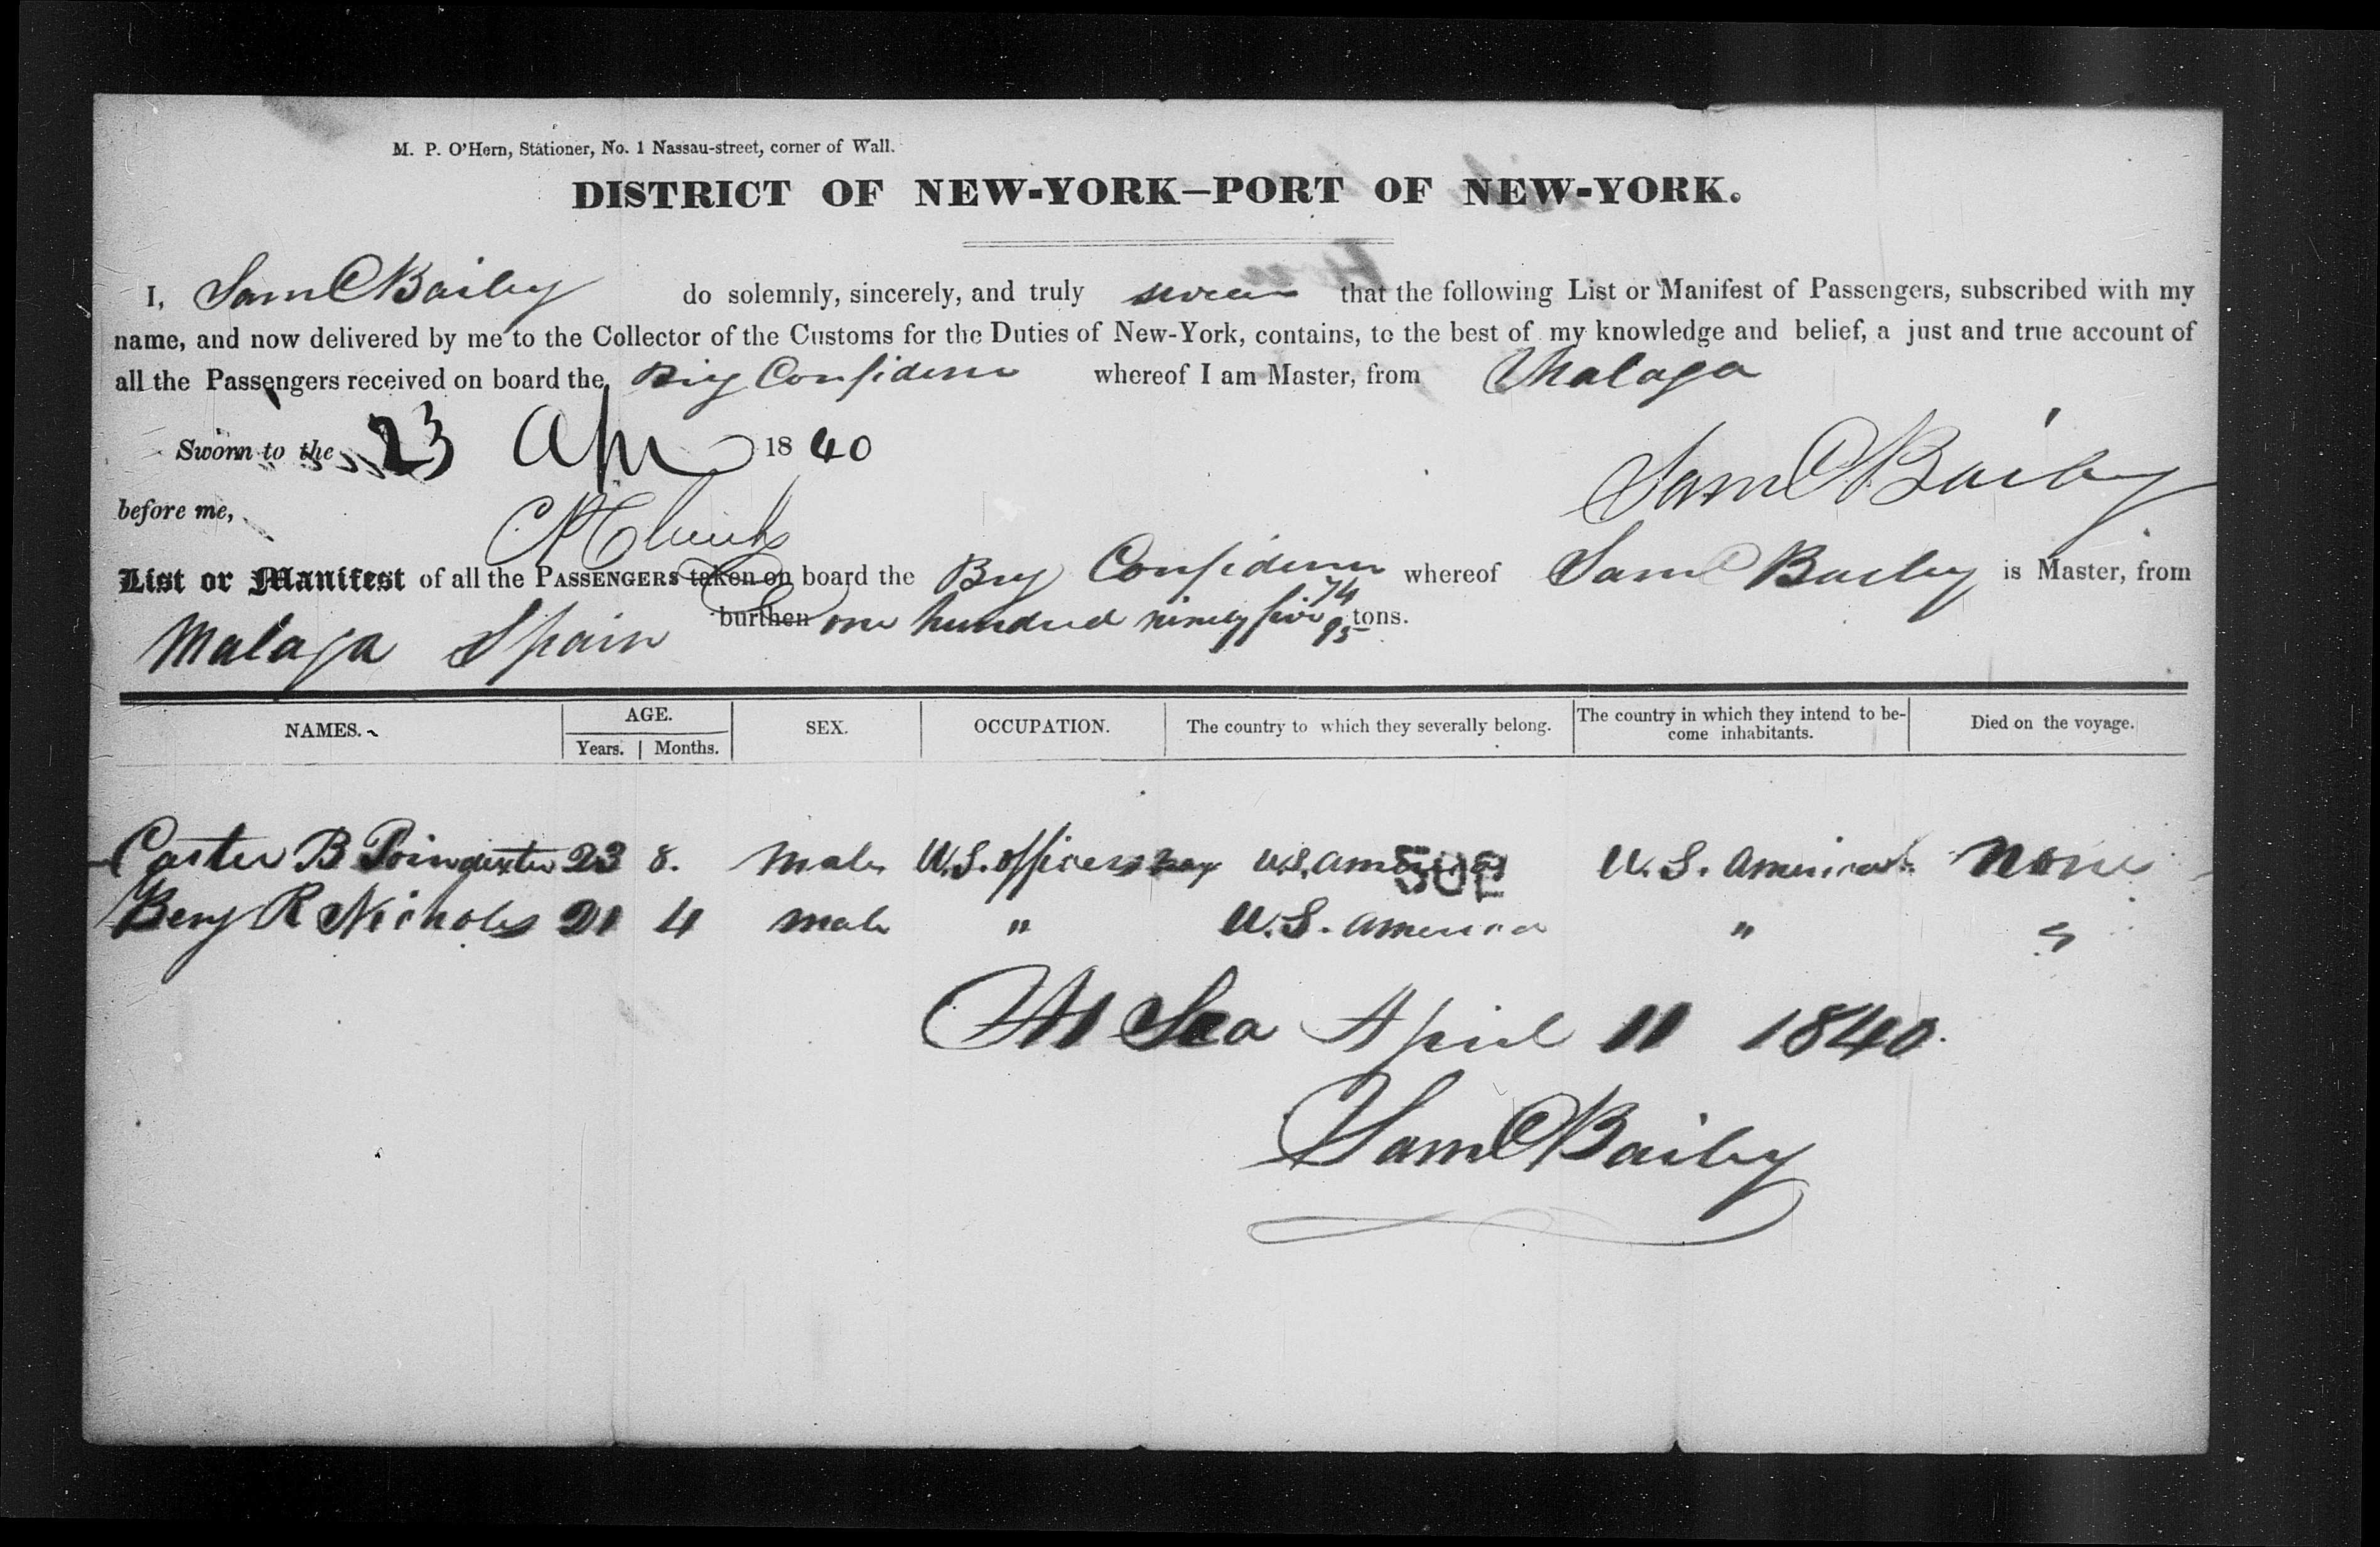 M. P. O'Hern, Stationer, No. 1 Nassau-street, corner of Wall.
DISTRICT OF NEW-YORK—PORT OF NEW-YORK.
I, Saml Bailey do solemnly, sincerely, and truly swear that the following List or Manifest of Passengers, subscribed with my
name, and now delivered by me to the Collector of the Customs for the Duties of New-York, contains, to the best of my knowledge and belief, a just and true account of
all the Passengers received on board the Brig Confidence whereof I am Master, from Malaga
Sworn to the 23 Apr 1840
Saml Bailey
before me,
List or Manifest of all the PASSENGERS taken on board the Brig Confidence whereof Saml Bailey is Master, from
Malaga Spain burthen one hundred ninety five 74/95 tons.
NAMES. AGE. SEX. OCCUPATION. The country to which they severally belong. The country in which they intend to be- Died on the voyage.
Years. Months. come inhabitants.
Carter B Poindexter 23 8. Male U.S. officers U.S. America U. S. America None
Benj R Nichols 21 4 Male " U.S. America " "
At Sea April 11 1840.
Saml Bailey